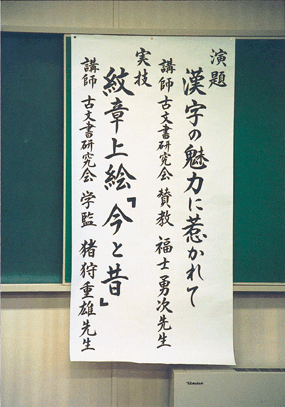 演題
漢字の魅力に惹かれて
講師 古文書研究会 賛教 福士勇次先生
実技
紋章上絵「今と昔」
講師 古文書研究会 学監 猪狩重雄先生